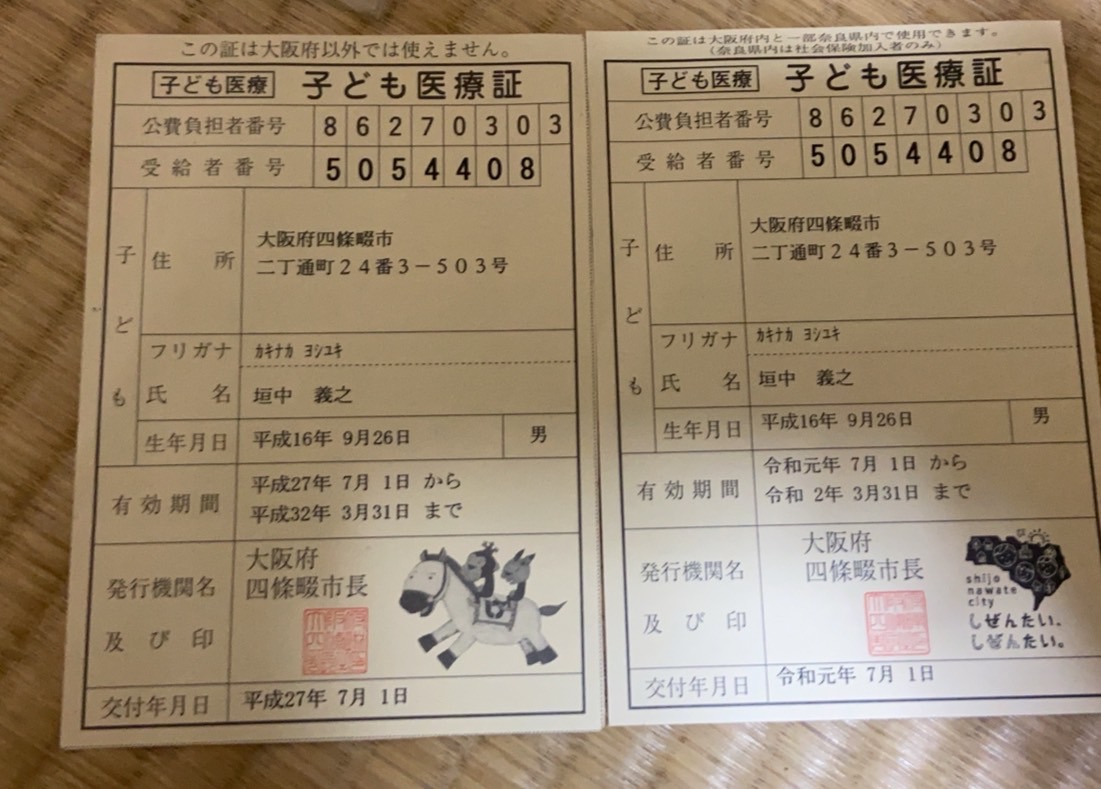 この証は大阪府以外では使えません。
子ども医療 子ども医療証
公費負担者番号 86270303
受給者番号 5054408
子ども
住所 大阪府四條畷市
二丁通町24番3-503号
フリガナ カキナカ ヨシユキ
氏名 垣中 義之
生年月日 平成16年 9月26日 男
有効期間 平成27年 7月 1日 から
平成32年 3月31日 まで
発行機関名
及び印
大阪府
四條畷市長
交付年月日 平成27年 7月 1日
この証は大阪府内と一部奈良県内で使用できます。
(奈良県内は社会保険加入者のみ)
子ども医療 子ども医療証
公費負担者番号 86270303
受給者番号 5054408
子ども
住所 大阪府四條畷市
二丁通町24番3-503号
フリガナ カキナカ ヨシユキ
氏名 垣中 義之
生年月日 平成16年 9月26日 男
有効期間 令和元年 7月 1日 から
令和 2年 3月31日 まで
発行機関名
及び印
大阪府
四條畷市長
shijo
nawate
city
しぜんたい、
しぜんたい。
交付年月日 令和元年 7月 1日